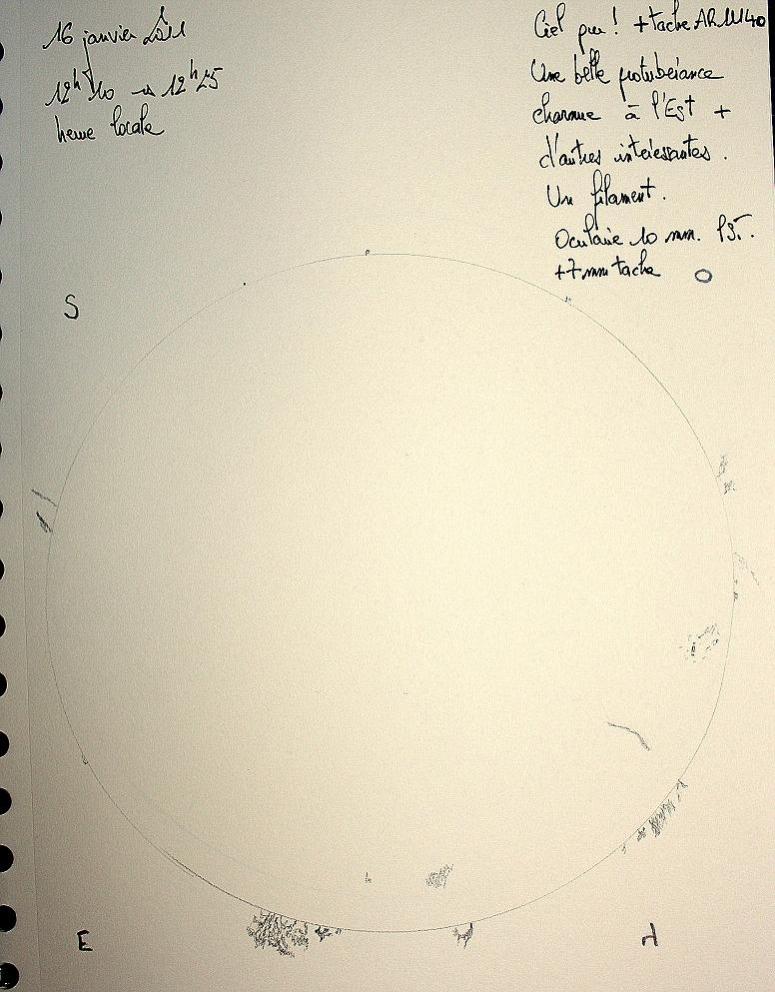 16 janvier 2011
12h10 → 12h25
heure locale
Ciel pur ! + tache AR 11140
Une belle protubérance
charnue à l'Est +
d'autres intéressantes.
Un filament.
Oculaire 10 mm. PST.
+ 7 mm tache
S
E
N